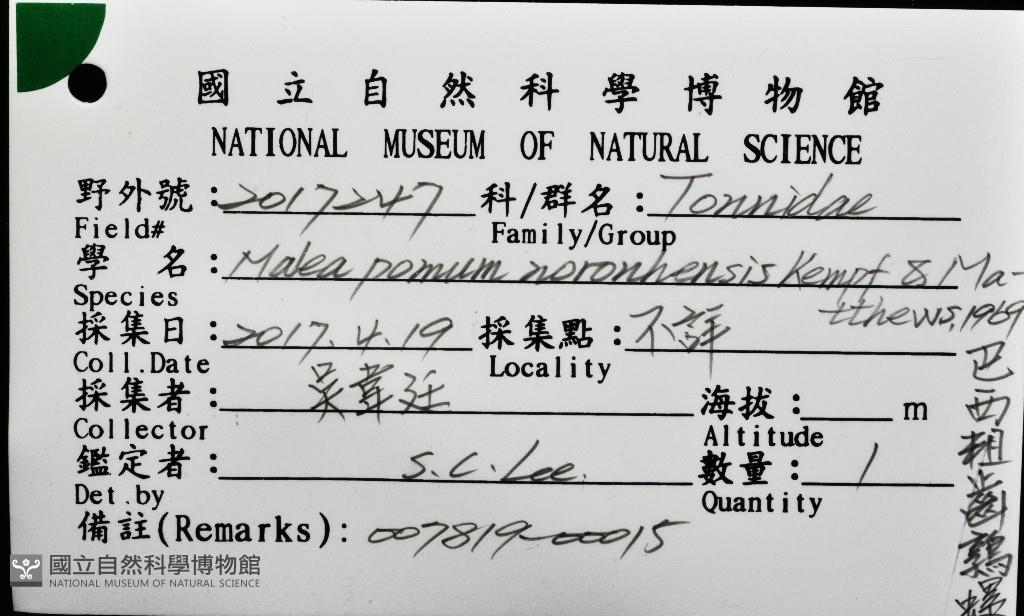 國立自然科學博物館
NATIONAL MUSEUM OF NATURAL SCIENCE
野外號：2017247 科/群名：Tonnidae
Field# Family/Group
學 名：Malea pomum noronhensis Kempf & Ma-
tthews, 1969
Species
採集日：2017.4.19 採集點：不詳
Coll.Date Locality
採集者：吳韋廷 海拔： m
Collector Altitude
鑑定者：S.C.Lee. 數量：1
Det.by Quantity
備註(Remarks)：007819-00015
巴西粗齒鶉螺
國立自然科學博物館
NATIONAL MUSEUM OF NATURAL SCIENCE